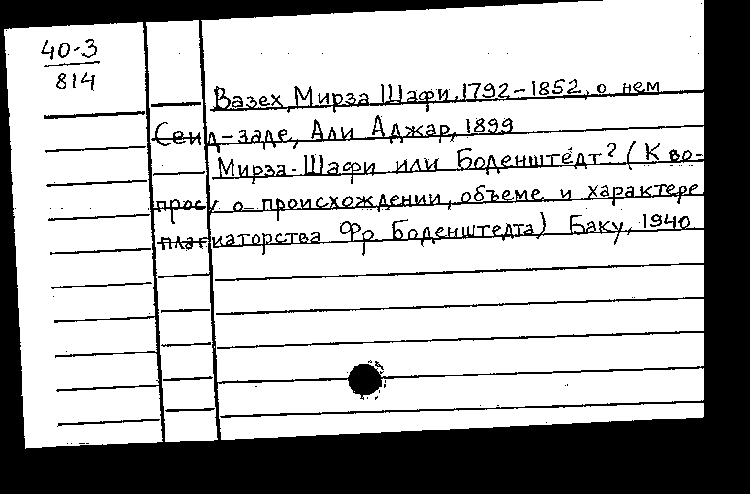 40-3
814
Вазех, Мирза Шафи, 1792-1852, о нем
Сеид-заде, Али Аджар, 1899
Мирза-Шафи или Боденштедт? (К во-
просу о происхождении, объеме и характере
плагиаторства Фр Боденштедта) Баку, 1940